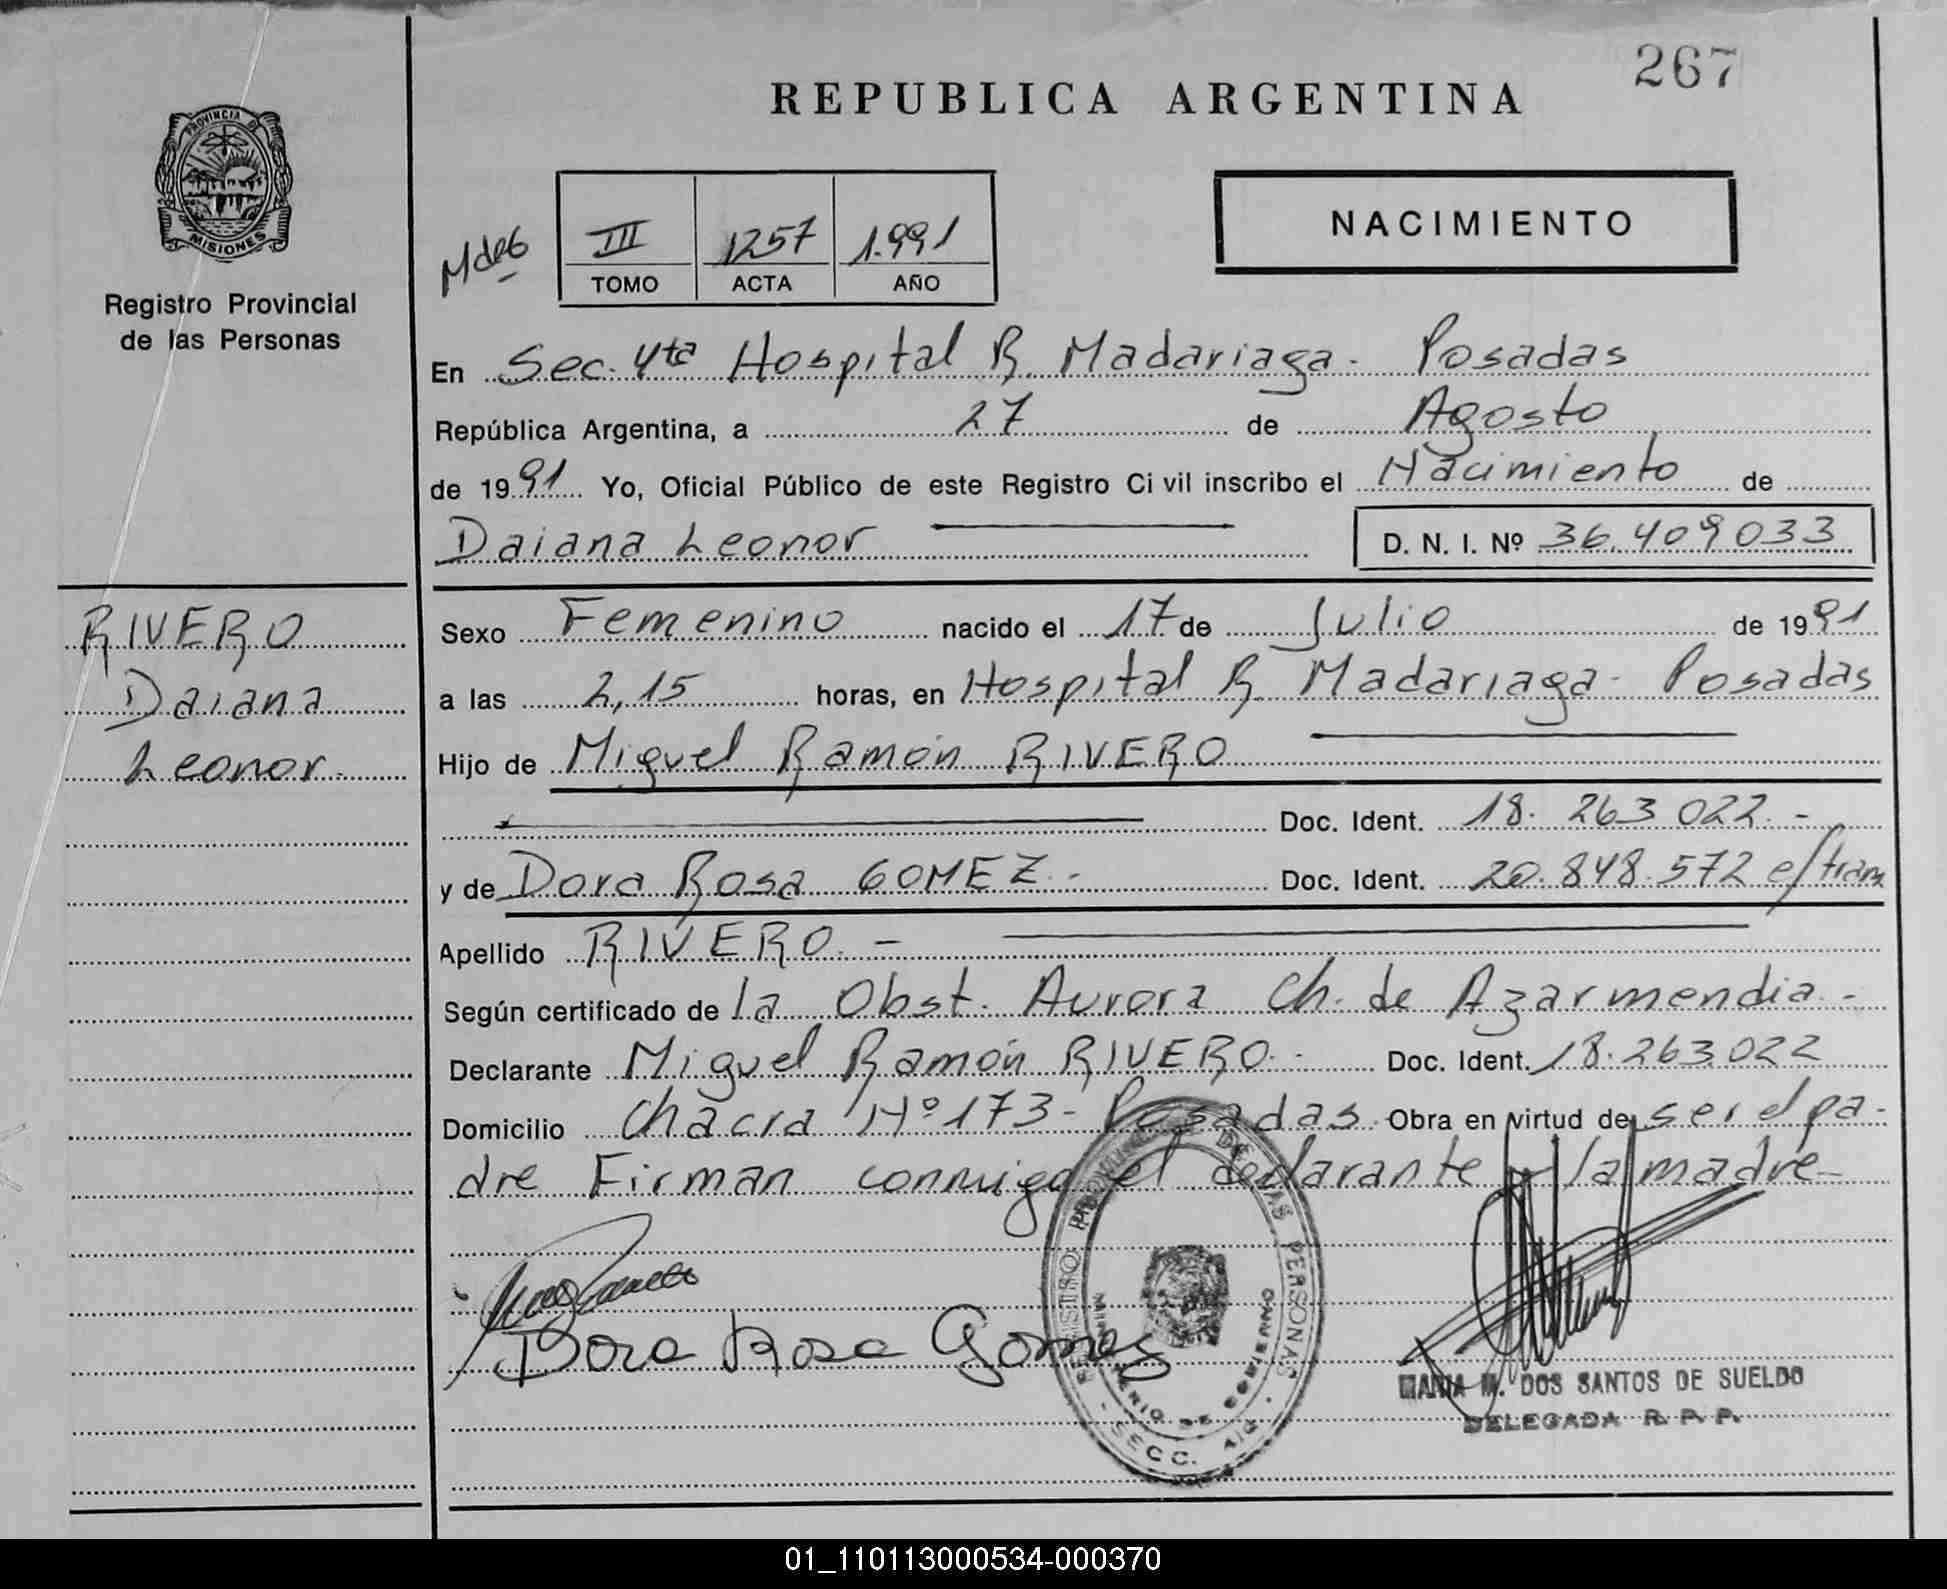 267
REPUBLICA ARGENTINA
PROVINCIA DE
MISIONES
Registro Provincial
de las Personas
NACIMIENTO
III 1257 1.991
TOMO ACTA AÑO
En Sec. 4ta Hospital R. Madariaga - Posadas
República Argentina, a 27 de Agosto
de 1991 Yo, Oficial Público de este Registro Civil inscribo el Nacimiento de
Daiana Leonor D. N. I. Nº 36.409033
RIVERO
Daiana
Leonor.
Sexo Femenino nacido el 17 de Julio de 1991
a las 2,15 horas, en Hospital R. Madariaga - Posadas
Hijo de Miguel Ramón RIVERO
Doc. Ident. 18.263022.-
y de Dora Rosa GOMEZ.- Doc. Ident. 20.848.572 e/tram
Apellido RIVERO.-
Según certificado de la Obst. Aurora Ch. de Azarmendia.-
Declarante Miguel Ramón RIVERO.- Doc. Ident. 18.263.022
Domicilio Chacra Nº 173 - Posadas Obra en virtud de ser el pa-
dre Firman conmigo el declarante y la madre-
Dora Rosa Gomez
REGISTRO PROVINCIAL DE LAS PERSONAS
MINISTERIO DE GOBIERNO
SECC. 4ta.
MARIA M. DOS SANTOS DE SUELDO
DELEGADA R. P. P.
01_110113000534-000370